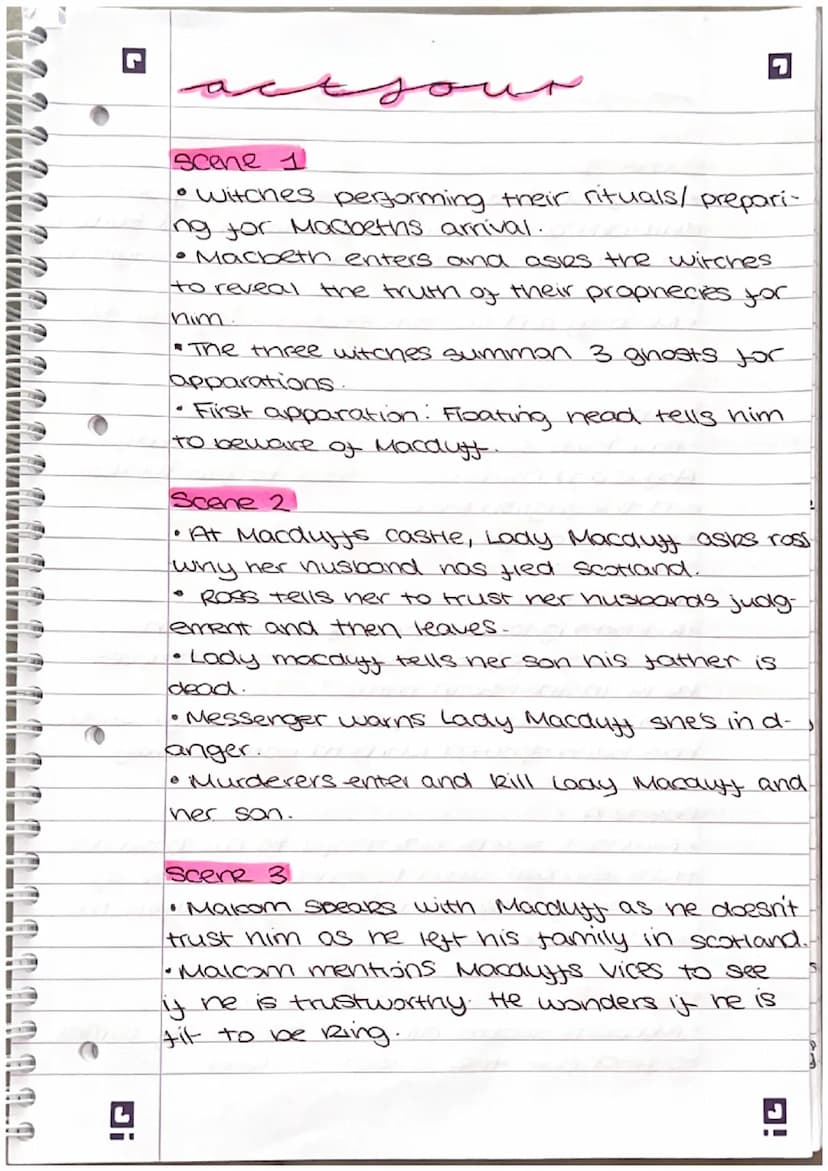 act four
Scene 1
• Witches performing their rituals/ prepari-
ng for Macbeths arrival.
• Macbeth enters and asks the witches
to reveal the truth of their prophecies for
him.
• The three witches summon 3 ghosts for
apparations.
• First apparation: Floating head tells him
to beware of Macduff.
Scene 2
• At Macduffs castle, Lady Macduff asks ross
why her husband has fled Scotland.
• Ross tells her to trust her husbands judg-
ement and then leaves.
• Lady macduff tells her son his father is
dead.
• Messenger warns Lady Macduff she's in d-
anger.
• Murderers enter and kill Lady Macduff and
her son.
Scene 3
• Malcom speaks with Macduff as he doesn't
trust him as he left his family in scotland.
• Malcom mentions Macduffs vices to see
if he is trustworthy. He wonders if he is
fit to be king.